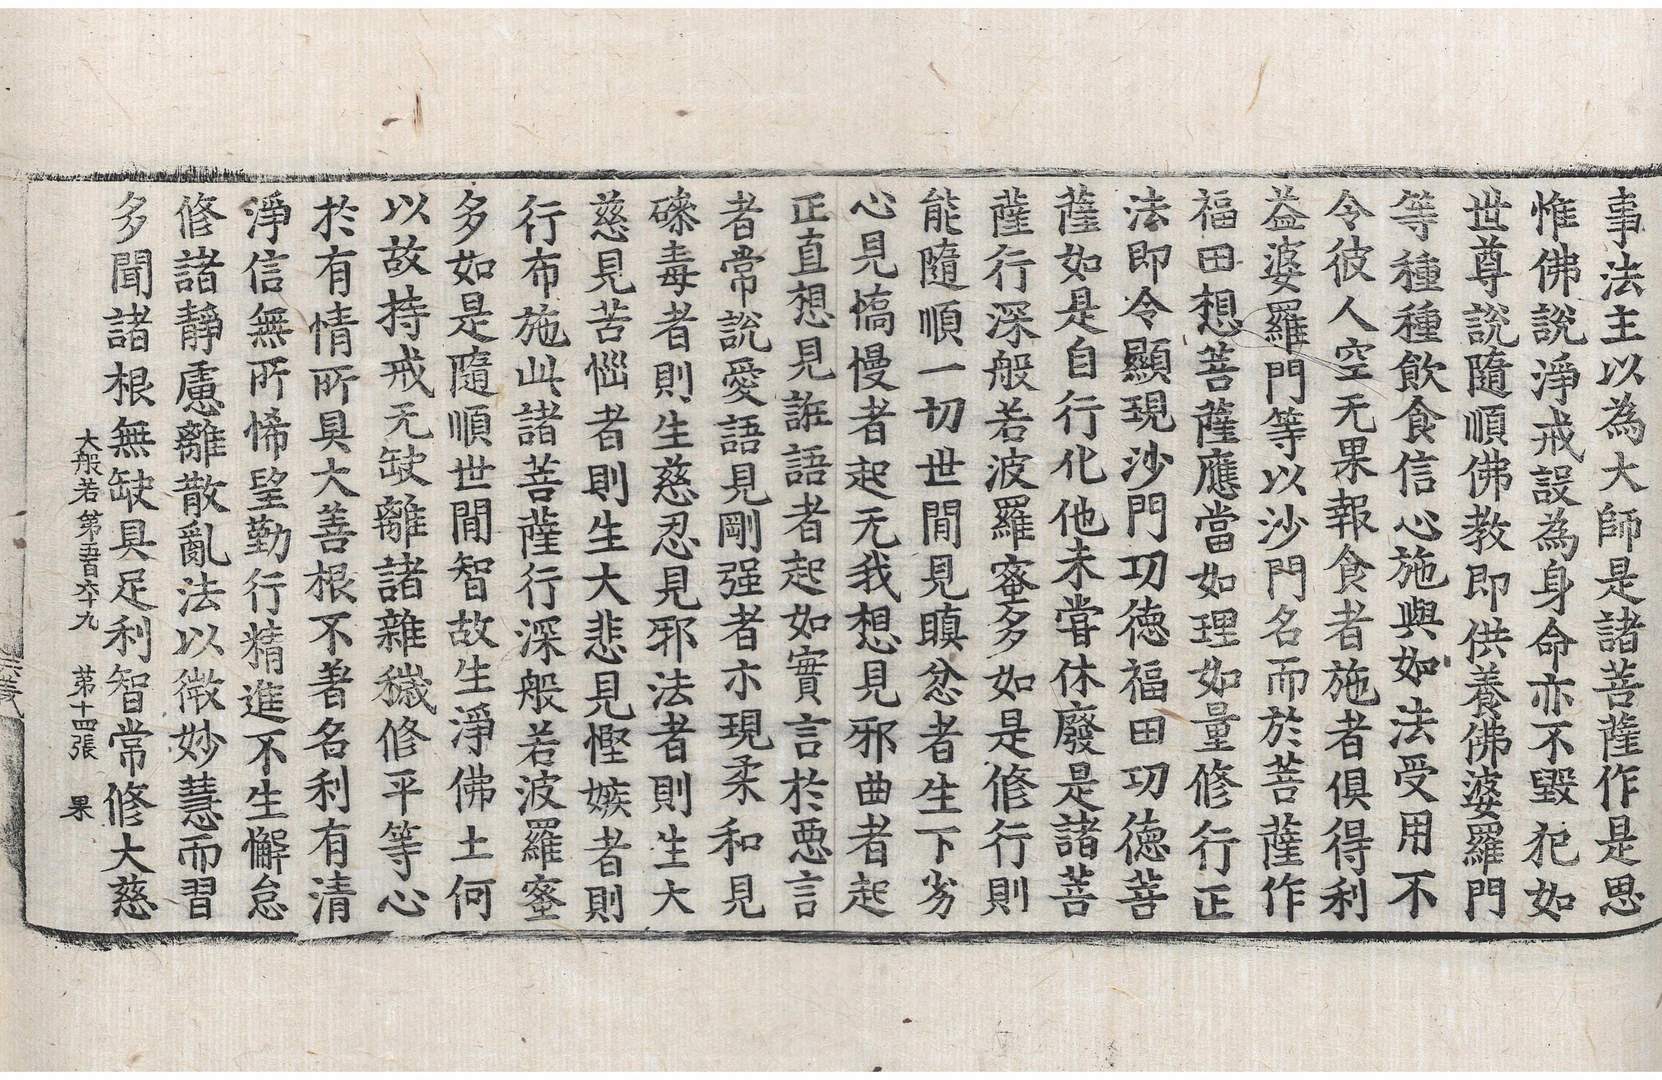 事法主以為大師是諸菩薩作是思
惟佛說淨戒設為身命亦不毀犯如
世尊說隨順佛教即供養佛婆羅門
等種種飲食信心施與如法受用不
令彼人空无果報食者施者俱得利
益婆羅門等以沙門名而於菩薩作
福田想菩薩應當如理如量修行正
法即令顯現沙門功德福田功德菩
薩如是自行化他未嘗休廢是諸菩
薩行深般若波羅蜜多如是修行則
能隨順一切世間見瞋忿者生下劣
心見憍慢者起无我想見邪曲者起
正直想見誑語者起如實言於惡言
者常說愛語見剛强者示現柔和見
磣毒者則生慈忍見邪法者則生大
慈見苦惱者則生大悲見慳嫉者則
行布施此諸菩薩行深般若波羅蜜
多如是隨順世間智故生淨佛土何
以故持戒无缺離諸雜穢修平等心
於有情所具大善根不著名利有清
淨信無所悕望勤行精進不生懈怠
修諸靜慮離散亂法以微妙慧而習
多聞諸根無缺具足利智常修大慈
大般若第五百六十九 第十四張 果